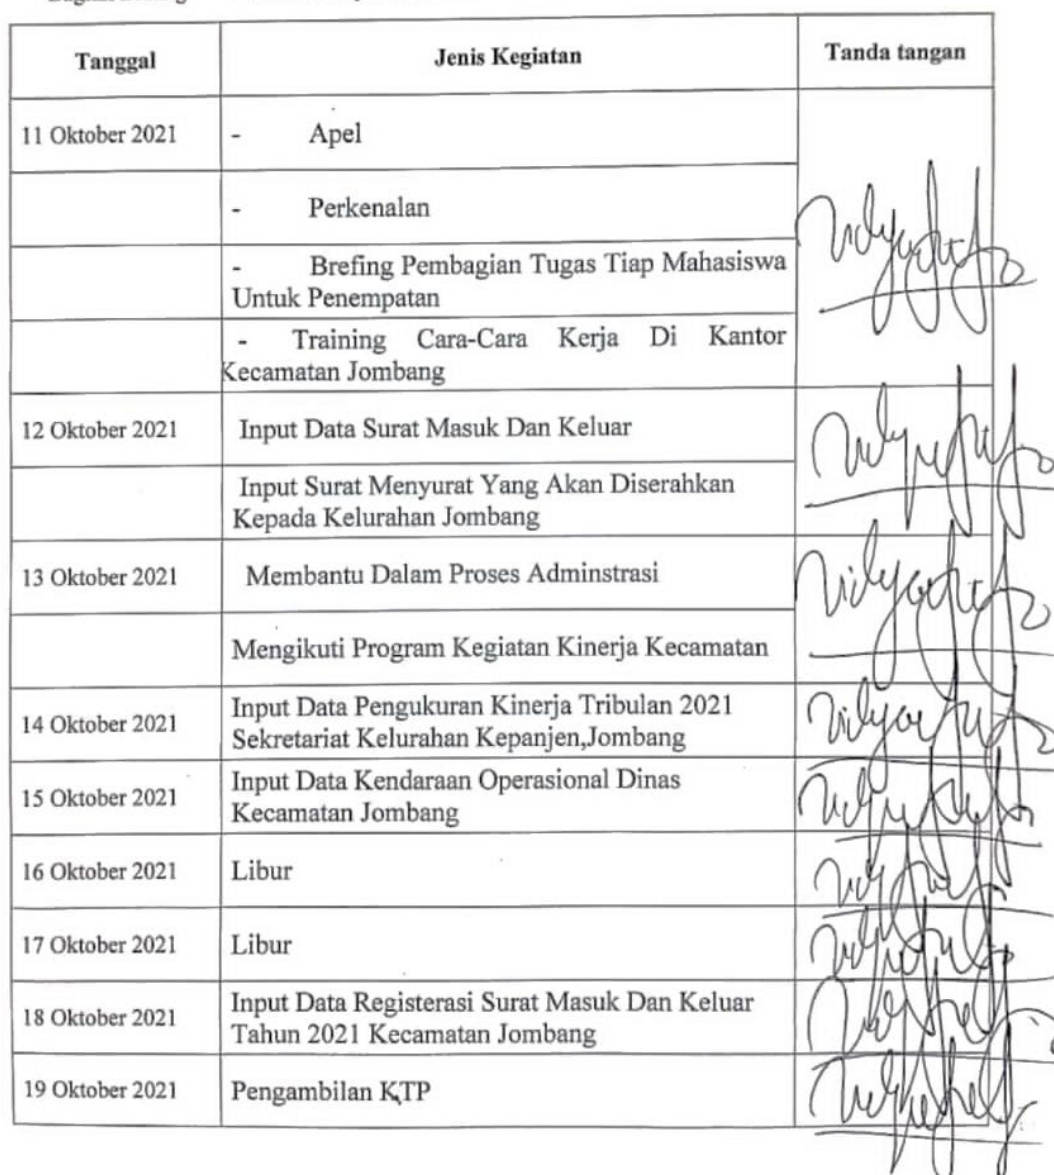 Tanggal Jenis Kegiatan Tanda tangan
11 Oktober 2021 - Apel
- Perkenalan
- Brefing Pembagian Tugas Tiap Mahasiswa
Untuk Penempatan
- Training Cara-Cara Kerja Di Kantor
Kecamatan Jombang
12 Oktober 2021 Input Data Surat Masuk Dan Keluar
Input Surat Menyurat Yang Akan Diserahkan
Kepada Kelurahan Jombang
13 Oktober 2021 Membantu Dalam Proses Adminstrasi
Mengikuti Program Kegiatan Kinerja Kecamatan
14 Oktober 2021 Input Data Pengukuran Kinerja Tribulan 2021
Sekretariat Kelurahan Kepanjen,Jombang
15 Oktober 2021 Input Data Kendaraan Operasional Dinas
Kecamatan Jombang
16 Oktober 2021 Libur
17 Oktober 2021 Libur
18 Oktober 2021 Input Data Registerasi Surat Masuk Dan Keluar
Tahun 2021 Kecamatan Jombang
19 Oktober 2021 Pengambilan KTP